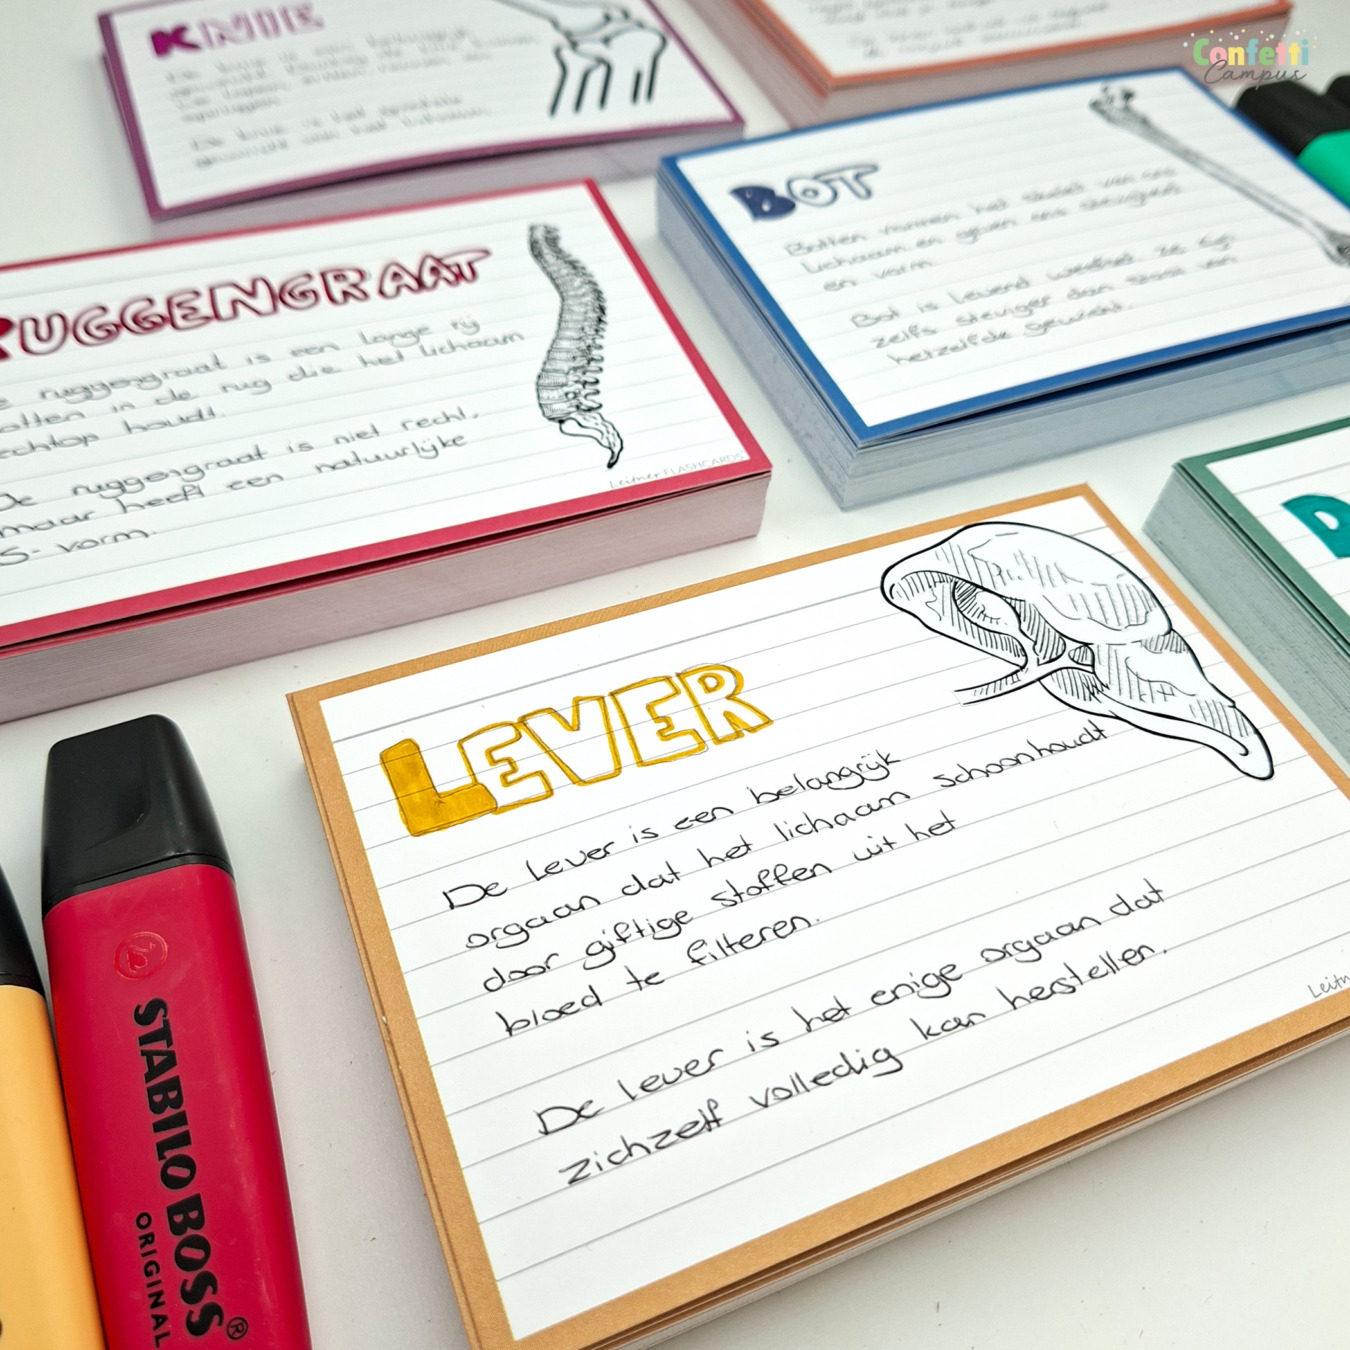 KNIE
Confetti
Campus
BOT
Botten vormen het skelet van ons
lichaam en geven ons stevigheid
en vorm.
Bot is levend weefsel. Ze zijn
zelfs steviger dan staal van
hetzelfde gewicht.
RUGGENGRAAT
ruggengraat is een lange rij
botten in de rug die het lichaam
rechtop houdt.
De ruggengraat is niet recht,
maar heeft een natuurlijke
S-vorm.
Leitner FLASHCARDS
LEVER
De lever is een belangrijk
orgaan dat het lichaam schoonhoudt
door giftige stoffen uit het
bloed te filteren.
De lever is het enige orgaan dat
zichzelf volledig kan herstellen.
STABILO BOSS®
ORIGINAL